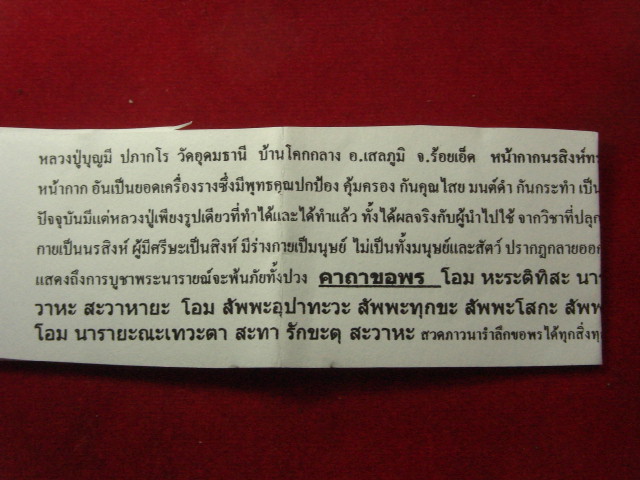 หลวงปู่บุญมี ปภากโร วัดอุดมธานี บ้านโคกกลาง อ.เสลภูมิ จ.ร้อยเอ็ด หน้ากากนรสิงห์
หน้ากาก อันเป็นยอดเครื่องรางซึ่งมีพุทธคุณปกป้อง คุ้มครอง กันคุณไสย มนต์ดำ กันกระทำ เป็น
ปัจจุบันมีแต่หลวงปู่เพียงรูปเดียวที่ทำได้และได้ทำแล้ว ทั้งได้ผลจริงกับผู้นำไปใช้ จากวิชาที่ปลุก
กายเป็นนรสิงห์ ผู้มีศรีษะเป็นสิงห์ มีร่างกายเป็มนุษย์ ไม่เป็นทั้งมนุษย์และสัตว์ ปรากฎกลายออก
แสดงถึงการบูชาพระนารายณ์จะพ้นภัยทั้งปวง คาถาขอพร โอม หะระติทิสะ นา
วาหะ สะวาหายะ โอม สัพพะอุปาทะวะ สัพพะทุกขะ สัพพะโสกะ สัพพ
โอม นารายะณะเทวะตา สะทา รักขะตุ สะวาหะ สวดภาวนารำลึกขอพรได้ทุกสิ่งทุ